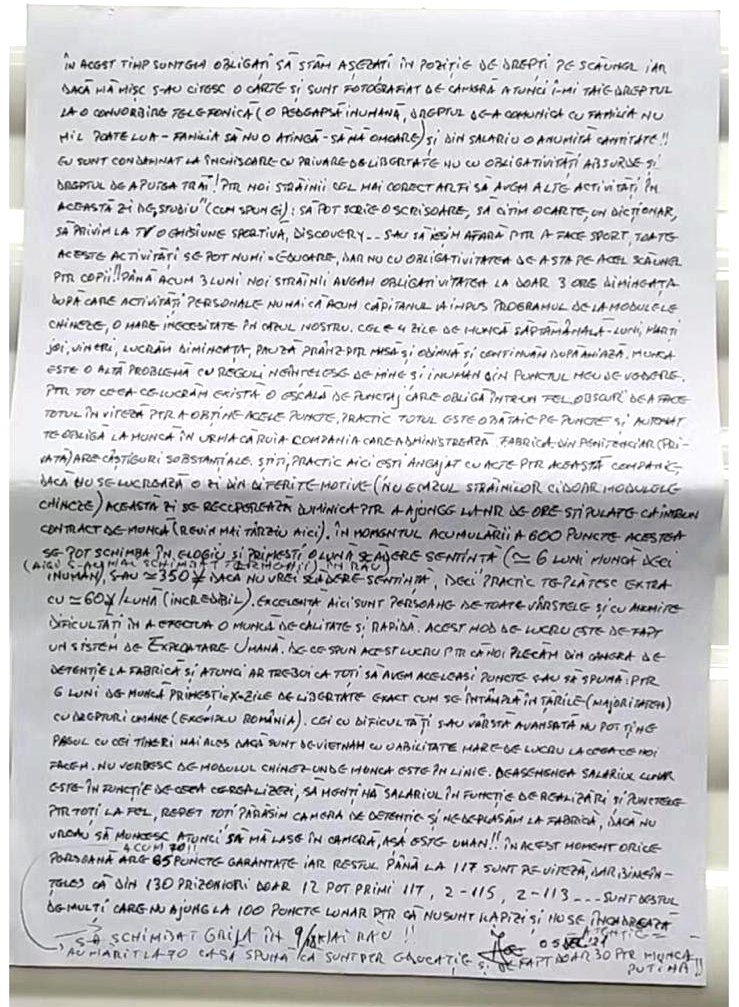 ÎN ACEST TIMP SUNTEM OBLIGATI SĂ STĂM AȘEZATI ÎN POZIȚIE DE DREPTI PE SCĂUNEL IAR
DACĂ MĂ MISC S-AU CITESC O CARTE ȘI SUNT FOTOGRAFIAT DE CAMERĂ ATUNCI I-MI TAIE DREPTUL
LA O CONVORBIRE TELEFONICĂ (O PEDEAPSĂ INUMANĂ, DREPTUL DE-A COMUNICA CU FAMILIA NU
MIL POATE LUA - FAMILIA SĂ NU O ATINGĂ - SĂ MĂ OMOARE) ȘI DIN SALARIU O ANUMITĂ CANTITATE!!
EU SUNT CONDAMNAT LA ÎNCHISOARE CU PRIVARE DE LIBERTATE NU CU OBLIGATIVITĂȚI ABSURDE ȘI
DREPTUL DE A PUTEA TRĂI! PTR NOI STRĂINII CEL MAI CORECT AR FI SĂ AVEM ALTE ACTIVITĂȚI ÎN
ACEASTĂ ZI DE „STUDIU" (CUM SPUN EI): SĂ POT SCRIE O SCRISOARE, SĂ CITIM O CARTE, UN DICȚIONAR,
SĂ PRIVIM LA TV O EMISIUNE SPORTIVĂ, DISCOVERY... SAU SĂ IEȘIM AFARĂ PTR A FACE SPORT, TOATE
ACESTE ACTIVITĂȚI SE POT NUMI = EDUCARE, DAR NU CU OBLIGATIVITATEA DE A STA PE ACEL SCĂUNEL
PTR COPII!! PÂNĂ ACUM 3 LUNI NOI STRĂINII AVEAM OBLIGATIVITATEA LA DOAR 3 ORE DIMINEAȚA
DUPĂ CARE ACTIVITĂȚI PERSONALE NUMAI CĂ ACUM CĂPITANUL IA IMPUS PROGRAMUL DE LA MODULELE
CHINEZE, O MARE INECESITATE ÎN CAZUL NOSTRU. CELE 4 ZILE DE MUNCĂ SĂPTĂMÂNALĂ - LUNI, MARȚI
JOI, VINERI, LUCRĂM DIMINEAȚA, PAUZĂ PRÂNZ PTR MASĂ ȘI ODINNĂ ȘI CONTINUĂM DUPĂ AMIAZĂ. MUNCA
ESTE O ALTĂ PROBLEMĂ CU REGULI NEÎNTELESE DE MINE ȘI INUMAN DIN PUNCTUL MEU DE VEDERE.
PTR TOT CEEA CE LUCRĂM EXISTĂ O ESCALĂ DE PUNCTAJ CARE OBLIGĂ ÎNTRUN FEL OBSCUR DE A FACE
TOTUL ÎN VITEZĂ PTR A OBȚINE ACELE PUNCTE, PRACTIC TOTUL ESTE O BĂTAIE PE PUNCTE ȘI AUTOMAT
TE OBLIGĂ LA MUNCĂ ÎN URMA CĂRUIA COMPANIA CARE ADMINISTREAZĂ FABRICA DIN PENITENCIAR (PRI-
VATĂ) ARE CÂȘTIGURI SUBSTANȚIALE. ȘTIȚI, PRACTIC AICI EȘTI ANGAJAT CU ACTE PTR ACEASTĂ COMPANIE,
DACĂ NU SE LUCREAZĂ O ZI DIN DIFERITE MOTIVE (NU E CAZUL STRĂINILOR CI DOAR MODULELE
CHINEZE) ACEASTĂ ZI SE RECUPEREAZĂ DUMINICA PTR A AJUNGE LA NR DE ORE STIPULATE CA ÎNTRUN
CONTRACT DE MUNCĂ (REVIN MAI TÂRZIU AICI). ÎN MOMENTUL ACUMULĂRII A 600 PUNCTE ACESTEA
SE POT SCHIMBA ÎN ELOGIU ȘI PRIMEȘTI O LUNĂ SCĂDERE SENTINȚĂ (≃ 6 LUNI MUNCĂ DECI
(AICI S-AU MAI SCHIMBAT TERMENII ÎN RĂU)
INUMAN), S-AU ≃350 ¥ DACĂ NU VREI SCĂDERE SENTINȚĂ, DECI PRACTIC TE PLĂTESC EXTRA
CU ≃60¥/LUNĂ (INCREDIBIL). EXCELENȚĂ AICI SUNT PERSOANE DE TOATE VÂRSTELE ȘI CU ANUMITE
DIFICULTĂȚI ÎN A EFECTUA O MUNCĂ DE CALITATE ȘI RAPIDĂ. ACEST MOD DE LUCRU ESTE DE FAPT
UN SISTEM DE EXPLOATARE UMANĂ. DE CE SPUN ACEST LUCRU PTR CĂ NOI PLECĂM DIN CAMERA DE
DETENȚIE LA FABRICĂ ȘI ATUNCI AR TREBUI CA TOTI SĂ AVEM ACELEAȘI PUNCTE S-AU SĂ SPUNĂ: PTR
6 LUNI DE MUNCĂ PRIMEȘTI = X-ZILE DE LIBERTATE EXACT CUM SE ÎNTÂMPLĂ ÎN ȚĂRILE (MAJORITATEA)
CU DREPTURI UMANE (EXEMPLU ROMÂNIA). CEI CU DIFICULTĂȚI S-AU VÂRSTĂ AVANSATĂ NU POT ȚINE
PASUL CU CEI TINERI MAI ALES DACĂ SUNT DE VIETNAM CU O ABILITATE MARE DE LUCRU LA CEEA CE NOI
FACEM. NU VORBESC DE MODULUL CHINEZ UNDE MUNCA ESTE ÎN LINIE. DEASEMENEA SALARIUL LUNAR
ESTE ÎN FUNCȚIE DE CEEA CE REALIZEZI, SĂ MENȚINĂ SALARIUL ÎN FUNCȚIE DE REALIZĂRI ȘI PUNCTELE
PTR TOȚI LA FEL, REPET TOȚI PĂRĂSIM CAMERA DE DETENȚIE ȘI NE DEPLASĂM LA FABRICĂ, DACĂ NU
VREAU SĂ MUNCESC ATUNCI SĂ MĂ LASE ÎN CAMERĂ, AȘA ESTE UMAN!! ÎN ACEST MOMENT ORICE
ACUM 70!!
PERSOANĂ ARE 85 PUNCTE GARANTATE IAR RESTUL PÂNĂ LA 117 SUNT PE VITEZĂ, DAR BINEÎN-
TELES CĂ DIN 130 PRIZONIERI DOAR 12 POT PRIMI 117, 2-115, 2-113... SUNT DESTUL
DE MULTI CARE NU AJUNG LA 100 PUNCTE LUNAR PTR CĂ NU SUNT RAPIZI ȘI NU SE ÎNCADREAZĂ
S-A SCHIMBAT GRILA ÎN 9/ MAI RĂU!! ATENȚIE =
AU MĂRIT LA 70 CA SĂ SPUNĂ CĂ SUNT PER EDUCAȚIE ȘI DE FAPT DOAR 30 PTR MUNCĂ
PUȚINĂ!!